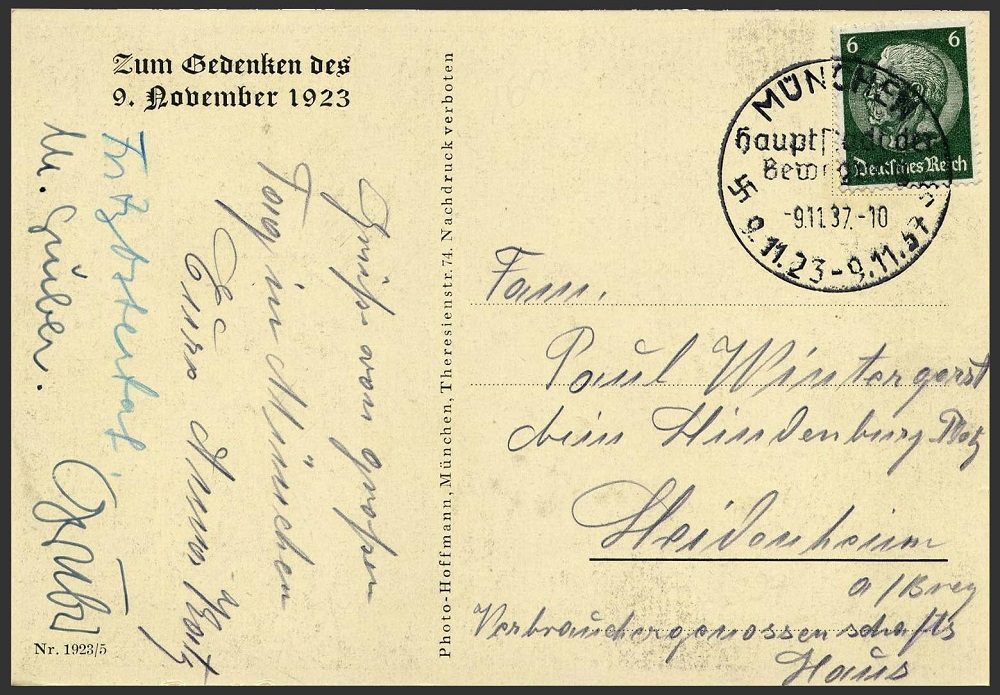 Zum Gedenken des
9. November 1923
Gruß vom großen
Tag in München
Euer
M. Gruber.
Nr. 1923/5
Photo-Hoffmann, München, Theresienstr. 74. Nachdruck verboten
6 6
Deutsches Reich
MÜNCHEN
Hauptstadt der
Bewegung
-9.11.37.-10
9.11.23-9.11.37
Fam.
Paul Wintergerst
beim Hindenburg Platz
Heidenheim
a/Brez
Verbrauchergenossenschafts
Haus